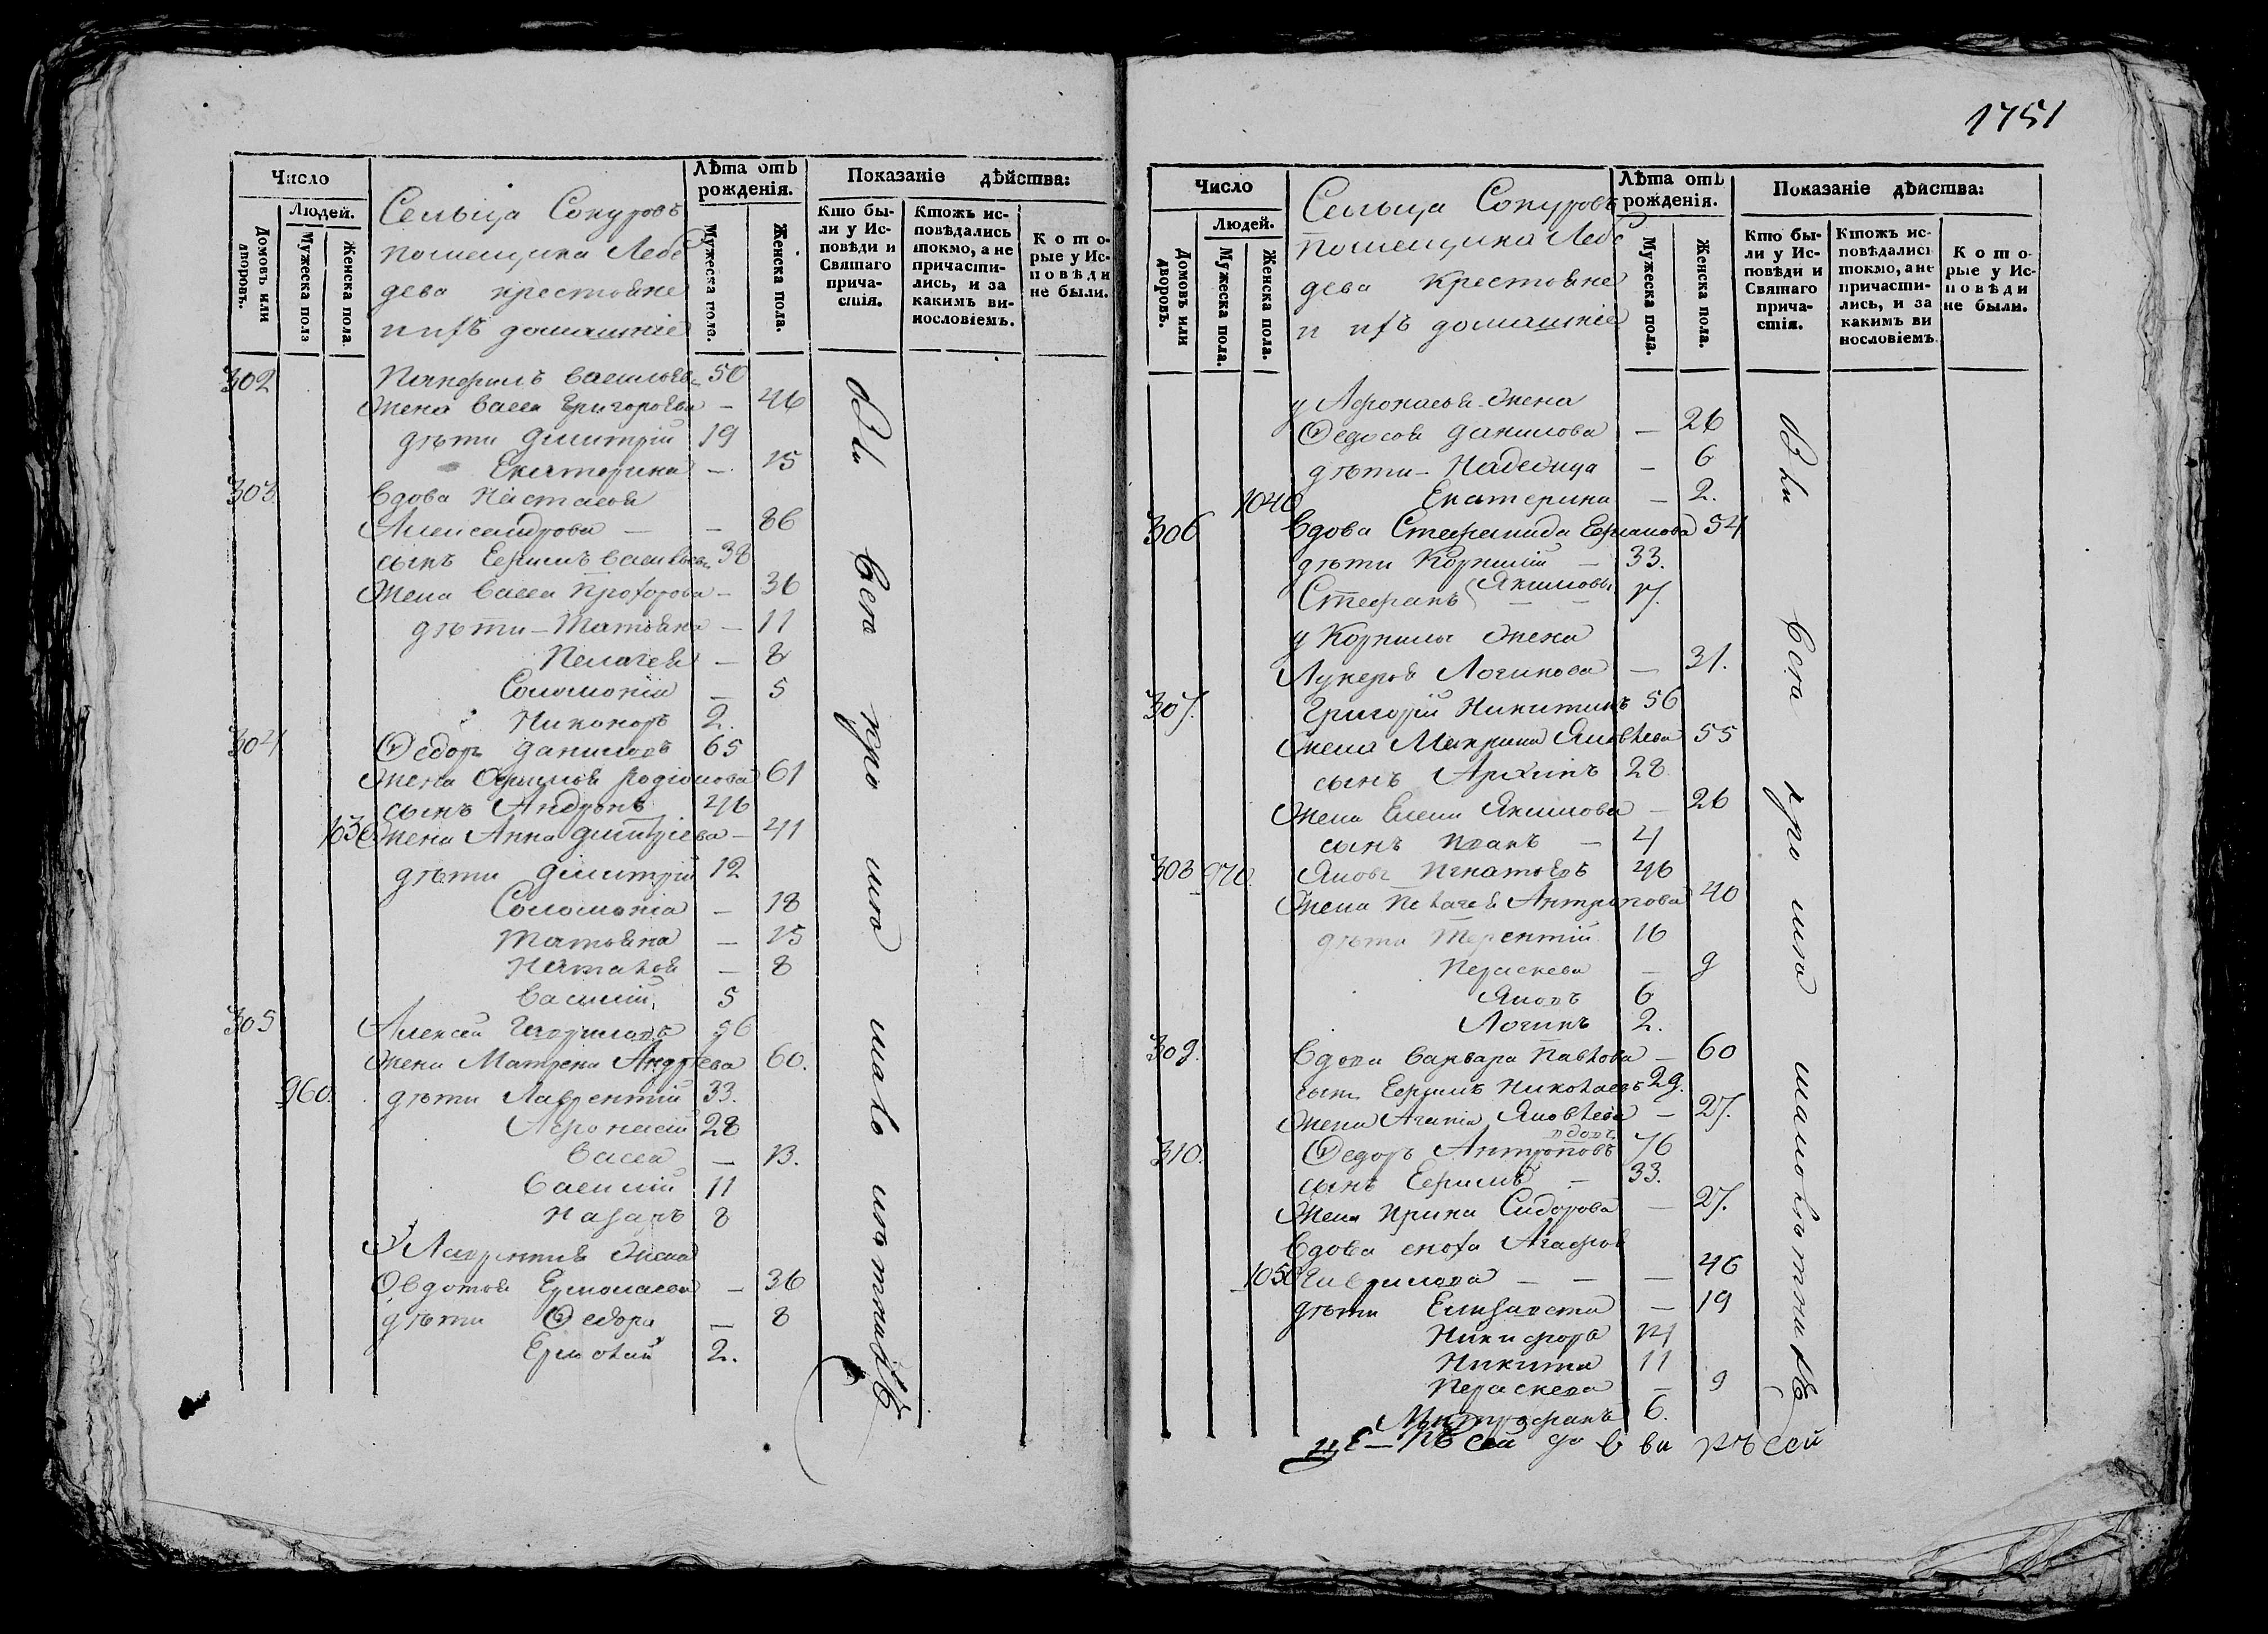 1751
Число
Людей.
Домовъ или дворовъ.
Мужеска пола
Женска пола.
Сельца Сокуровъ
помещика Лебе
дева крестьяне
и ихъ домашніе
Лѣта отъ рожденія.
Мужеска пола.
Женска пола.
Показаніе дѣйства:
Кто бы-
ли у Ис-
повѣди и
Святаго
прича-
стія.
Ктожъ ис-
повѣдались
токмо, а не
причасти-
лись, и за
какимъ ви-
нословіемъ.
Кото-
рые у Ис-
повѣди
не были.
302 Панфилъ Васильевъ 50
Жена Васса Григорьева — 46
дѣти Димитрій 19
Екатерина — 15
303 Вдова Настасья
Александрова — — 86
сынъ Ефимъ Васильевъ 38
Жена Васса Прохорова — 36
дѣти — Татьяна — 11
Пелагея — 8
Соломонія — 5
Никоноръ 2.
304 Ѳедоръ Даниловъ 65
Жена Ефимья Родіонова 61
сынъ Андронъ 46
1030 Жена Анна Димитріева — 41
дѣти Димитрій 12
Соломонія — 18
Татьяна — 15
Наталья — 8
Василій 5
305 Алексей Гавриловъ 56
Жена Матрена Андрѣева 60.
960. дѣти Лаврентій 33.
Афонасій 28
Васса — 13.
Василій 11
Назаръ 8
У Лаврентія Жена
Овдотья Ермолаева — 36
дѣти Ѳедора — 8
Ермолай 2.
Число
Людей.
Домовъ или дворовъ.
Мужеска пола.
Женска пола.
Сельца Сокуровъ
помещика Лебе
дева Крестьяне
и ихъ домашніе
Лѣта отъ рожденія.
Мужеска пола.
Женска пола.
Показаніе дѣйства:
Кто бы-
ли у Ис-
повѣди и
Святаго
прича-
стія.
Ктожъ ис-
повѣдались
токмо, а не
причасти-
лись, и за
какимъ ви
нословіемъ.
Кото-
рые у Ис-
повѣди
не были.
у Афонасья Жена
Ѳедосья Данилова — 26
дѣти — Надежда — 6
1040 Екатерина — 2.
306 Вдова Стефанида 54
дѣти Корнилій — 33.
Стефанъ Якимовы 17.
у Корнилы Жена
Лукерья Логинова — 31.
307. Григорій Никитинъ 56
Жена Макрина Яковлева 55
сынъ Архипъ 28.
Жена Елена Якимова — 26
сынъ Иванъ — 4
308 970. Яковъ Игнатьевъ 46
Жена Пелагея Антропова 40
дѣти Терентій 16
Пераскева — 9
Яковъ 6
Логинъ 2.
309. Вдова Варвара Павлова — 60
сынъ Ефимъ Николаевъ 29.
Жена Агапія Яковлева — 27.
310. Ѳедоръ Антроповъ вдовъ 76
сынъ Ефимъ — 33.
Жена Ирина Сидорова — 27.
Вдова сноха Агафья
1050 Гаврилова — — — 46
дѣти Елизавета — 19
Никифоръ 14
Никита 11
Пераскева — 9
Митрофанъ 6.